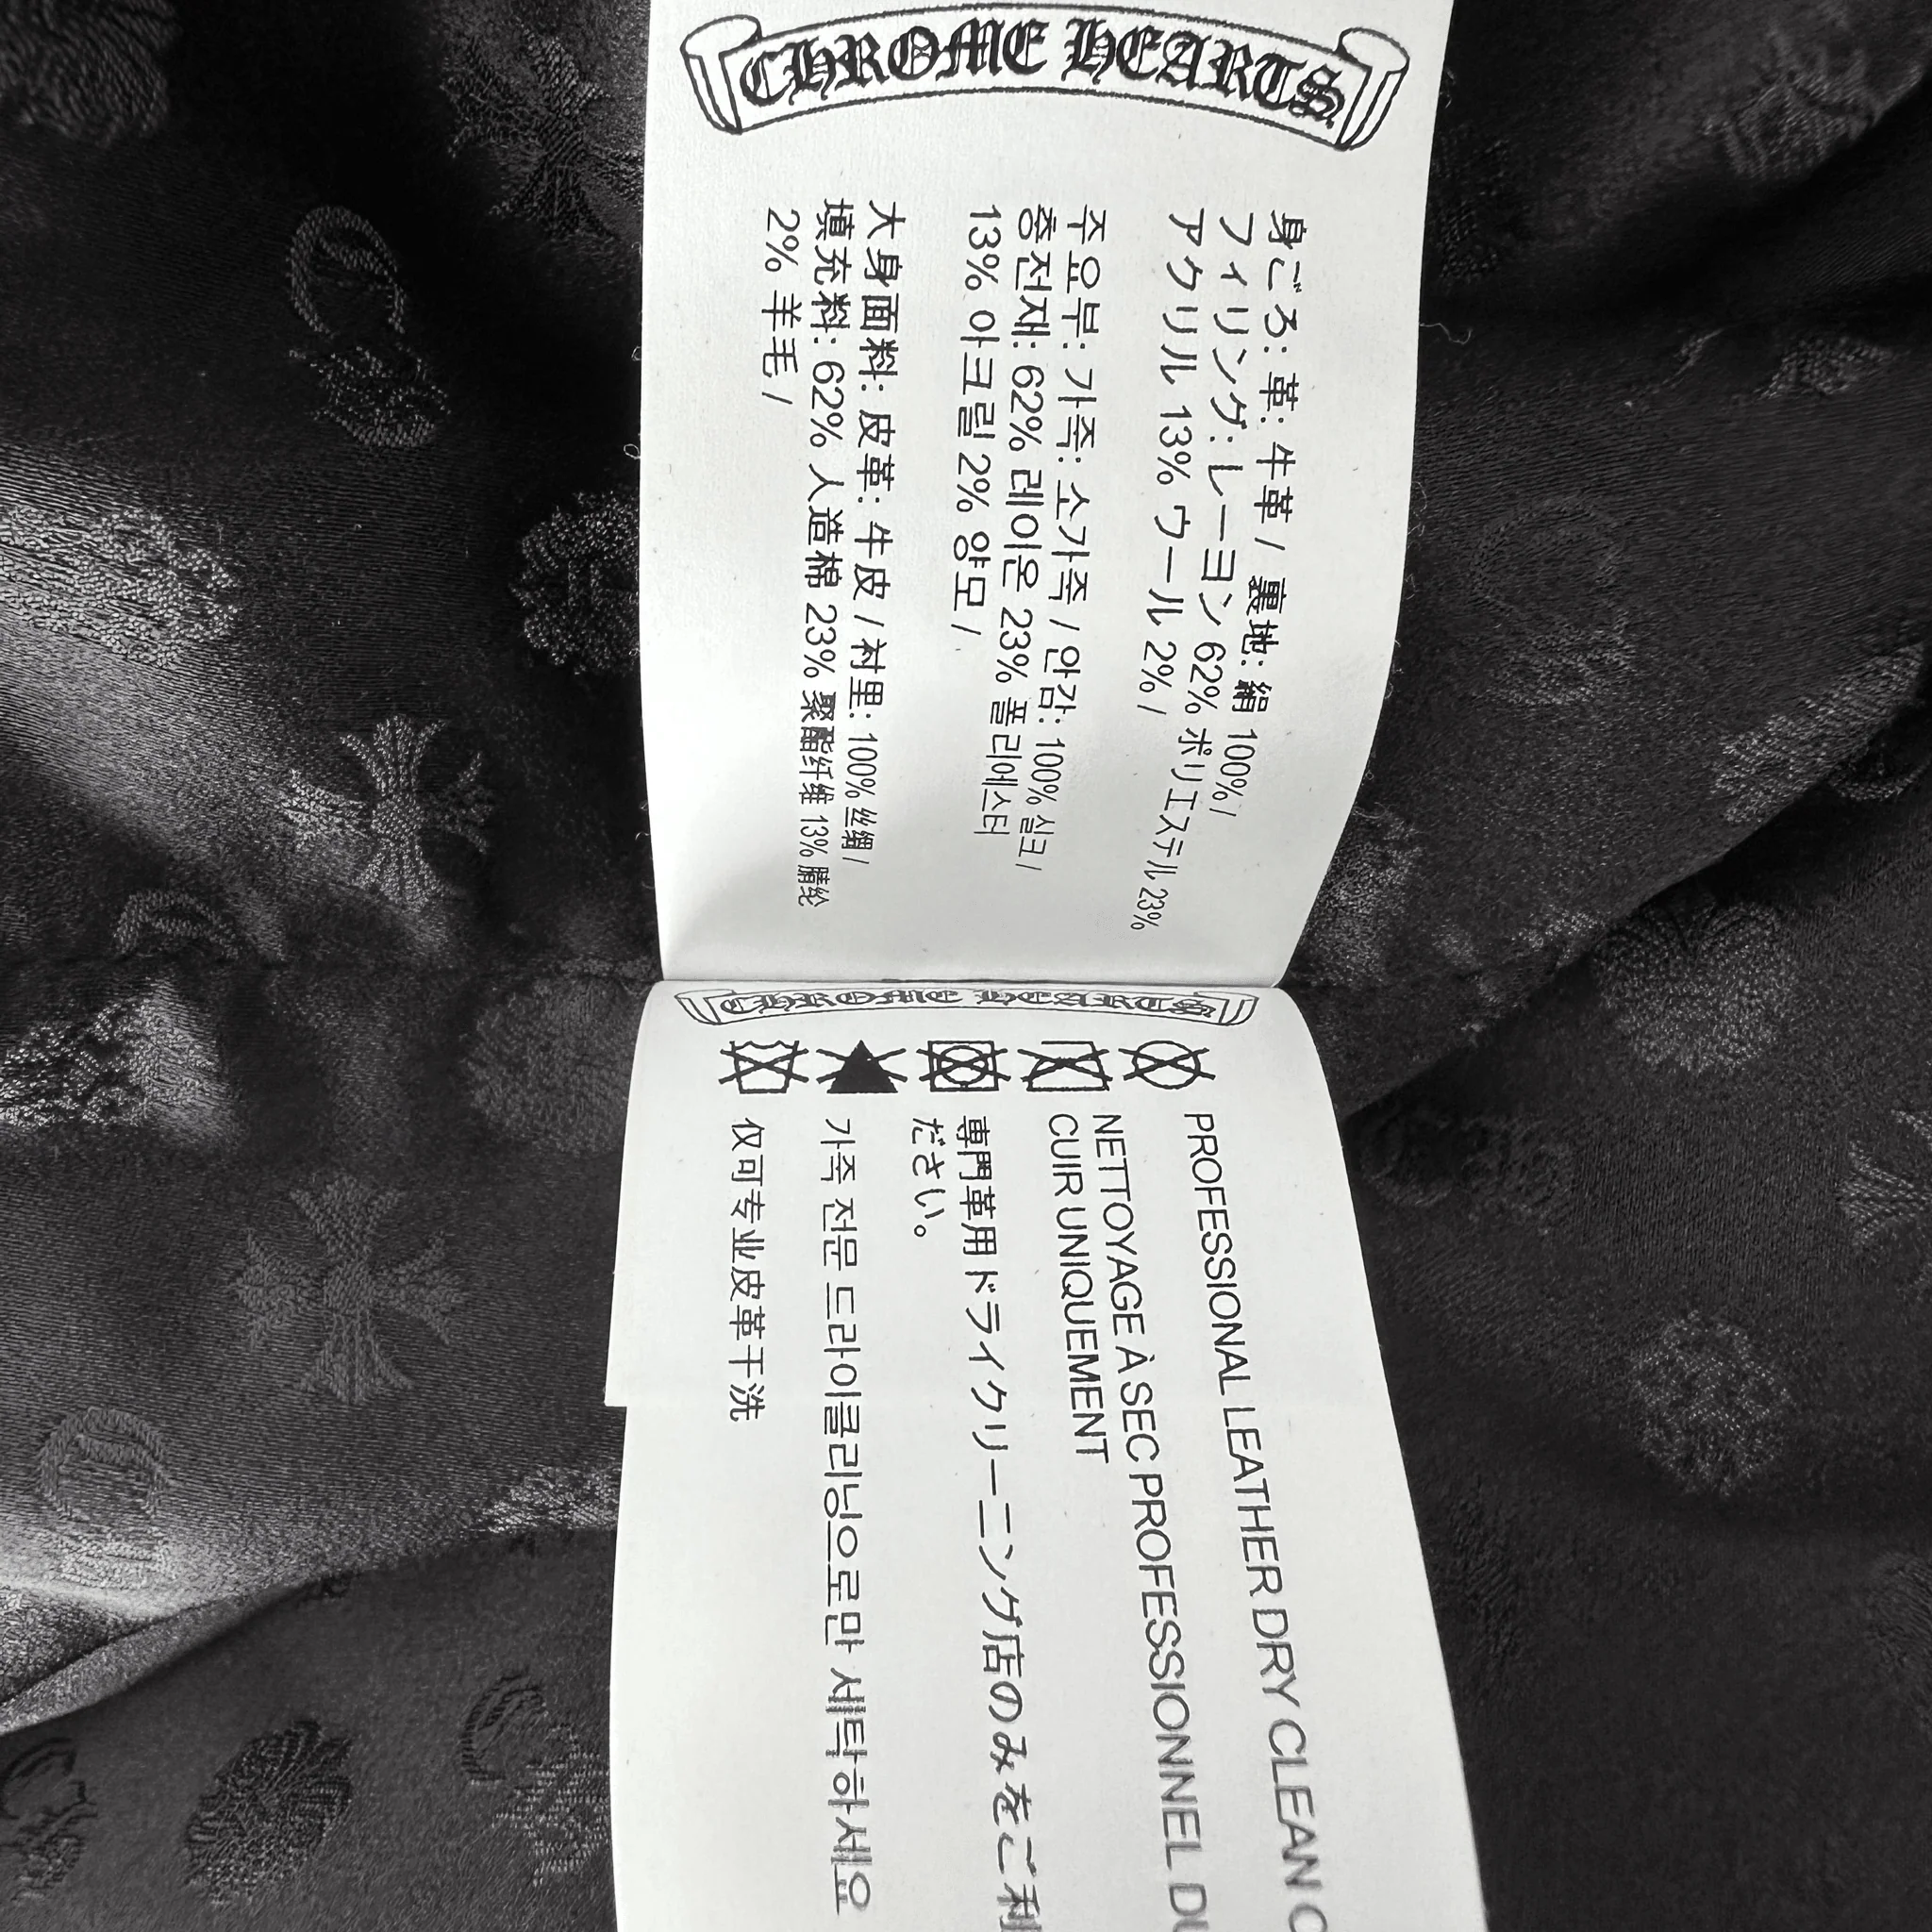 CHROME HEARTS
身ごろ: 革: 牛革 / 裏地: 絹 100% /
フィリング: レーヨン 62% ポリエステル 23%
アクリル 13% ウール 2% /
주요부: 가죽: 소가죽 / 안감: 100% 실크 /
충전재: 62% 레이온 23% 폴리에스터
13% 아크릴 2% 양모 /
大身面料: 皮革: 牛皮 / 衬里: 100% 丝绸 /
填充料: 62% 人造棉 23% 聚酯纤维 13% 腈纶
2% 羊毛 /
CHROME HEARTS
PROFESSIONAL LEATHER DRY CLEAN
NETTOYAGE À SEC PROFESSIONNEL DU
CUIR UNIQUEMENT
専門革用ドライクリーニング店のみをご利
ださい。
가죽 전문 드라이클리닝으로만 세탁하세요
仅可专业皮革干洗